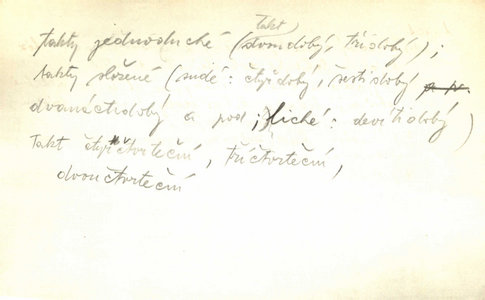 takt
takty jednoduché (dvoudobý, třídobý);
takty složené (sudé: čtyřdobý, šestidobý
dvanáctidobý a pod.; liché: devítidobý)
Takt čtyřčtvrteční, tříčtvrteční,
dvoučtvrteční